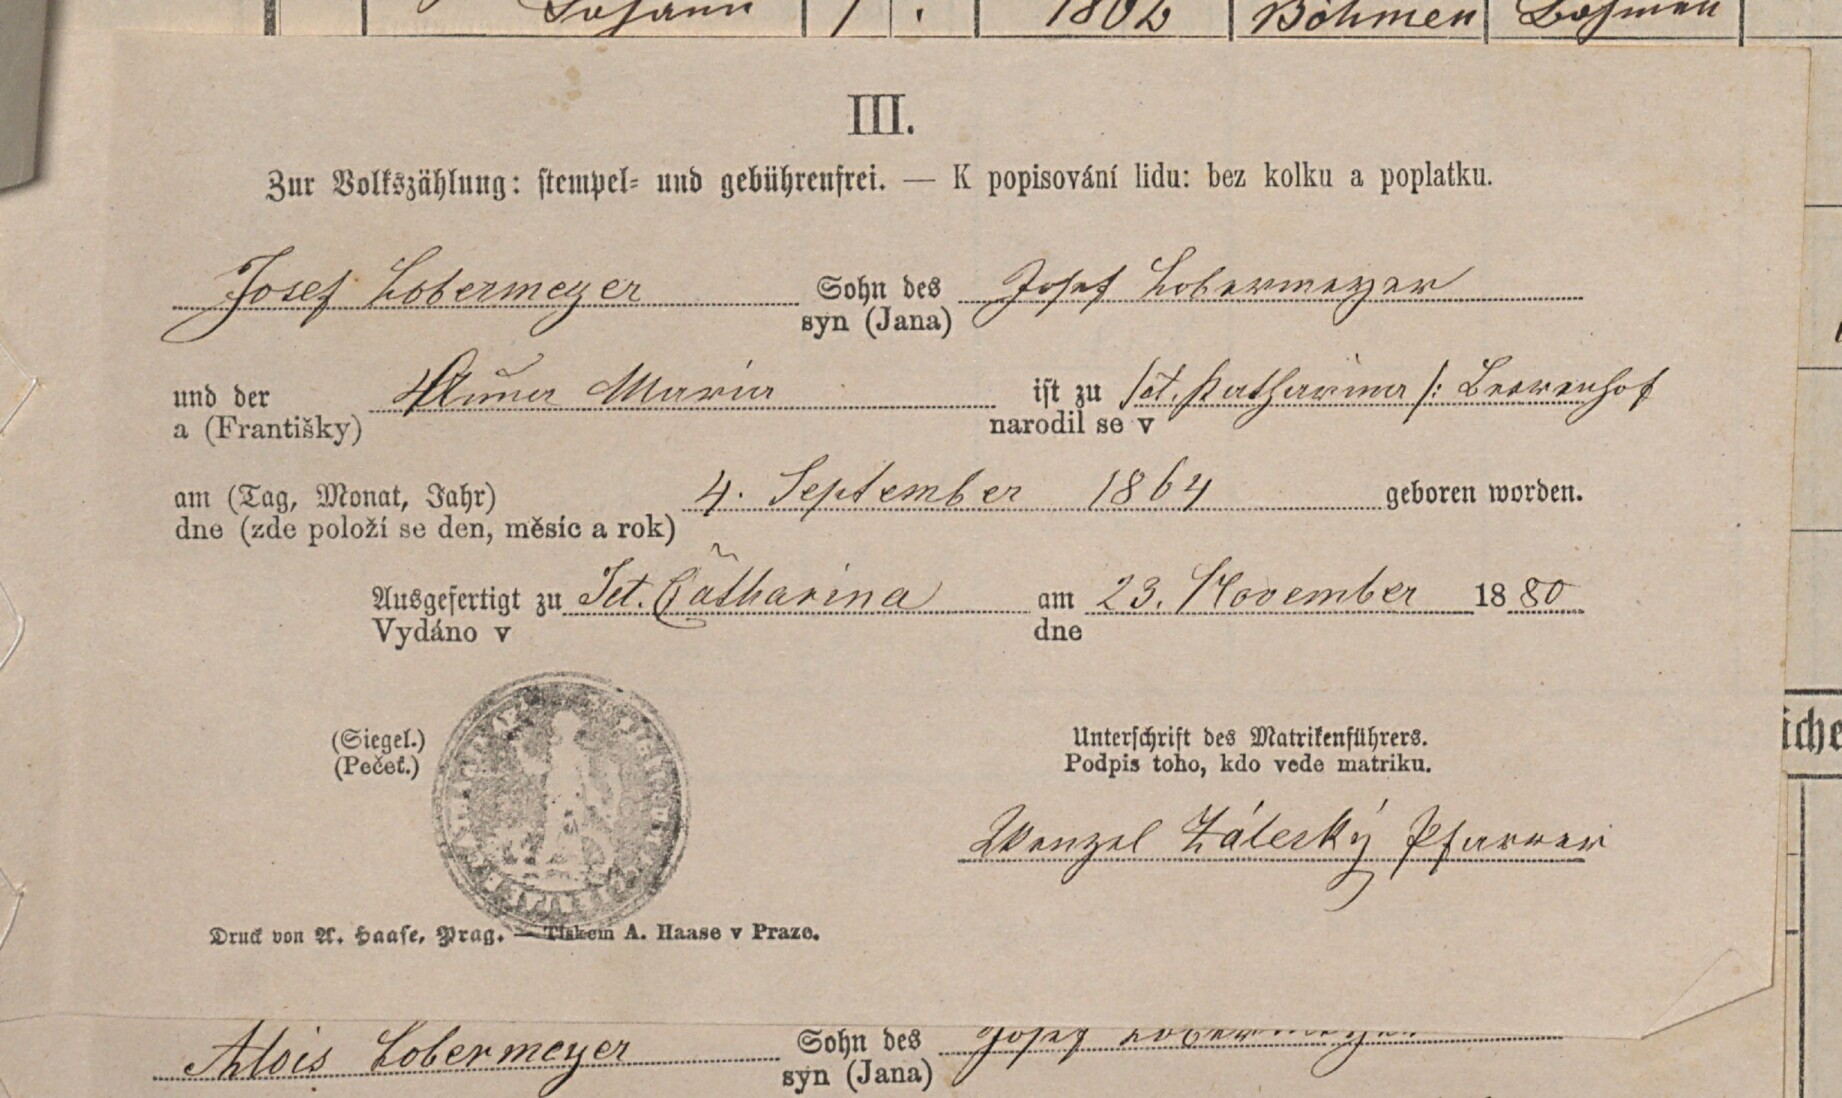 Johann 1 . 1862 Böhmen Böhmen
III.
Zur Volkszählung: stempel- und gebührenfrei. — K popisování lidu: bez kolku a poplatku.
Josef Lobermeyer Sohn des Josef Lobermeyer
syn (Jana)
und der Anna Maria ist zu Sct. Katharina /:
a (Františky) narodil se v
am (Tag, Monat, Jahr) 4. September 1864 geboren worden.
dne (zde položí se den, měsíc a rok)
Ausgefertigt zu Sct. Catharina am 23. November 1880
Vydáno v dne
(Siegel.) Unterschrift des Matrikenführers.
(Pečeť.) Podpis toho, kdo vede matriku.
Wenzel Záleský Pfarrer
Druck von A. Haase, Prag. — Tiskem A. Haase v Praze.
Alois Lobermeyer Sohn des Josef Lobermeyer
syn (Jana)